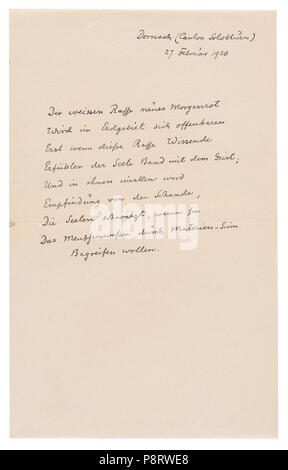 Dornach (Canton Solothurn)
27. Februar 1920
Der weissen Rasse neues Morgenrot
Wird im Erdgebiet sich offenbaren
Erst wenn dieser Rasse Wissende
Erfühlen der Seele Band mit dem Geist;
Und in ihnen wirken wird
Empfindung von der Schande,
Die Seelen schwärzt, wenn sie
Das Menschenwesen durch Materien-Sinn
Begreifen wollen.
alamy
Image ID: P8RWE8
www.alamy.com